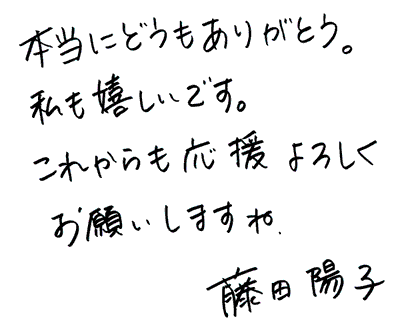 本当にどうもありがとう。
私も嬉しいです。
これからも応援よろしく
お願いしますね.
藤田陽子